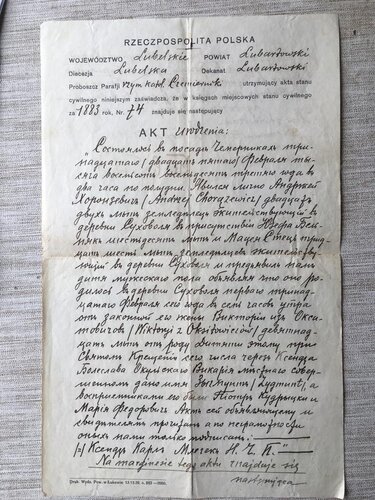 RZECZPOSPOLITA POLSKA
WOJEWÓDZTWO Lubelskie POWIAT Lubartowski
Diecezja Lubelska Dekanat Lubartowski
Proboszcz Parafji rzym. kat. Czemierniki utrzymujący akta stanu
cywilnego niniejszym zaświadcza, że w księgach miejscowych stanu cywilnego
za 1883 rok, Nr. 74 znajduje się następujący
AKT urodzenia:
"Состоялось въ посадѣ Чемерникахъ три-
надцатаго/двадцать пятаго/ Февраля ты-
сяча восемьсотъ восемьдесятъ третьяго года въ
два часа по полудни. Явился лично Андржей
Хоронжевичъ /Andrzej Chorążewicz/ двадцати
двухъ лѣтъ земледѣлецъ жительствующій въ
деревни Суховоля въ присутствіи Юзефа
шестидесяти лѣтъ и Мацея Стеця трид-
цати шести лѣтъ земледѣльцевъ жительству-
ющихъ въ деревни Суховоля и предъявилъ намъ
дитя мужескаго пола объявляя что оно ро-
дилось въ деревни Суховоля перваго/трина-
дцатаго Февраля сего года въ семь часовъ утра
отъ законной его жены Викторіи изъ Окси-
товичовъ /Wiktorji z Oksitowiczów/ девятнад-
цати лѣтъ отъ роду. Дитяти этому при
Святомъ Крещеніи сего числа черезъ Ксендза
Болеслава Викарія мѣстнаго совер-
шенномъ дано имя Зыгмунтъ /Zygmunt/, а
воспріемниками его были Піотръ Кудрыцки и
Марія Федоровичъ. Актъ сей объявляющему и
свидѣтелямъ прочитанъ а по неграмотности
оныхъ нами только подписанъ. —
/=/ Ксендзъ Карлъ Н. Ч. П."
Na marginesie tego aktu znajduje się
następująca
Druk. Wydz. Pow. w Łukowie